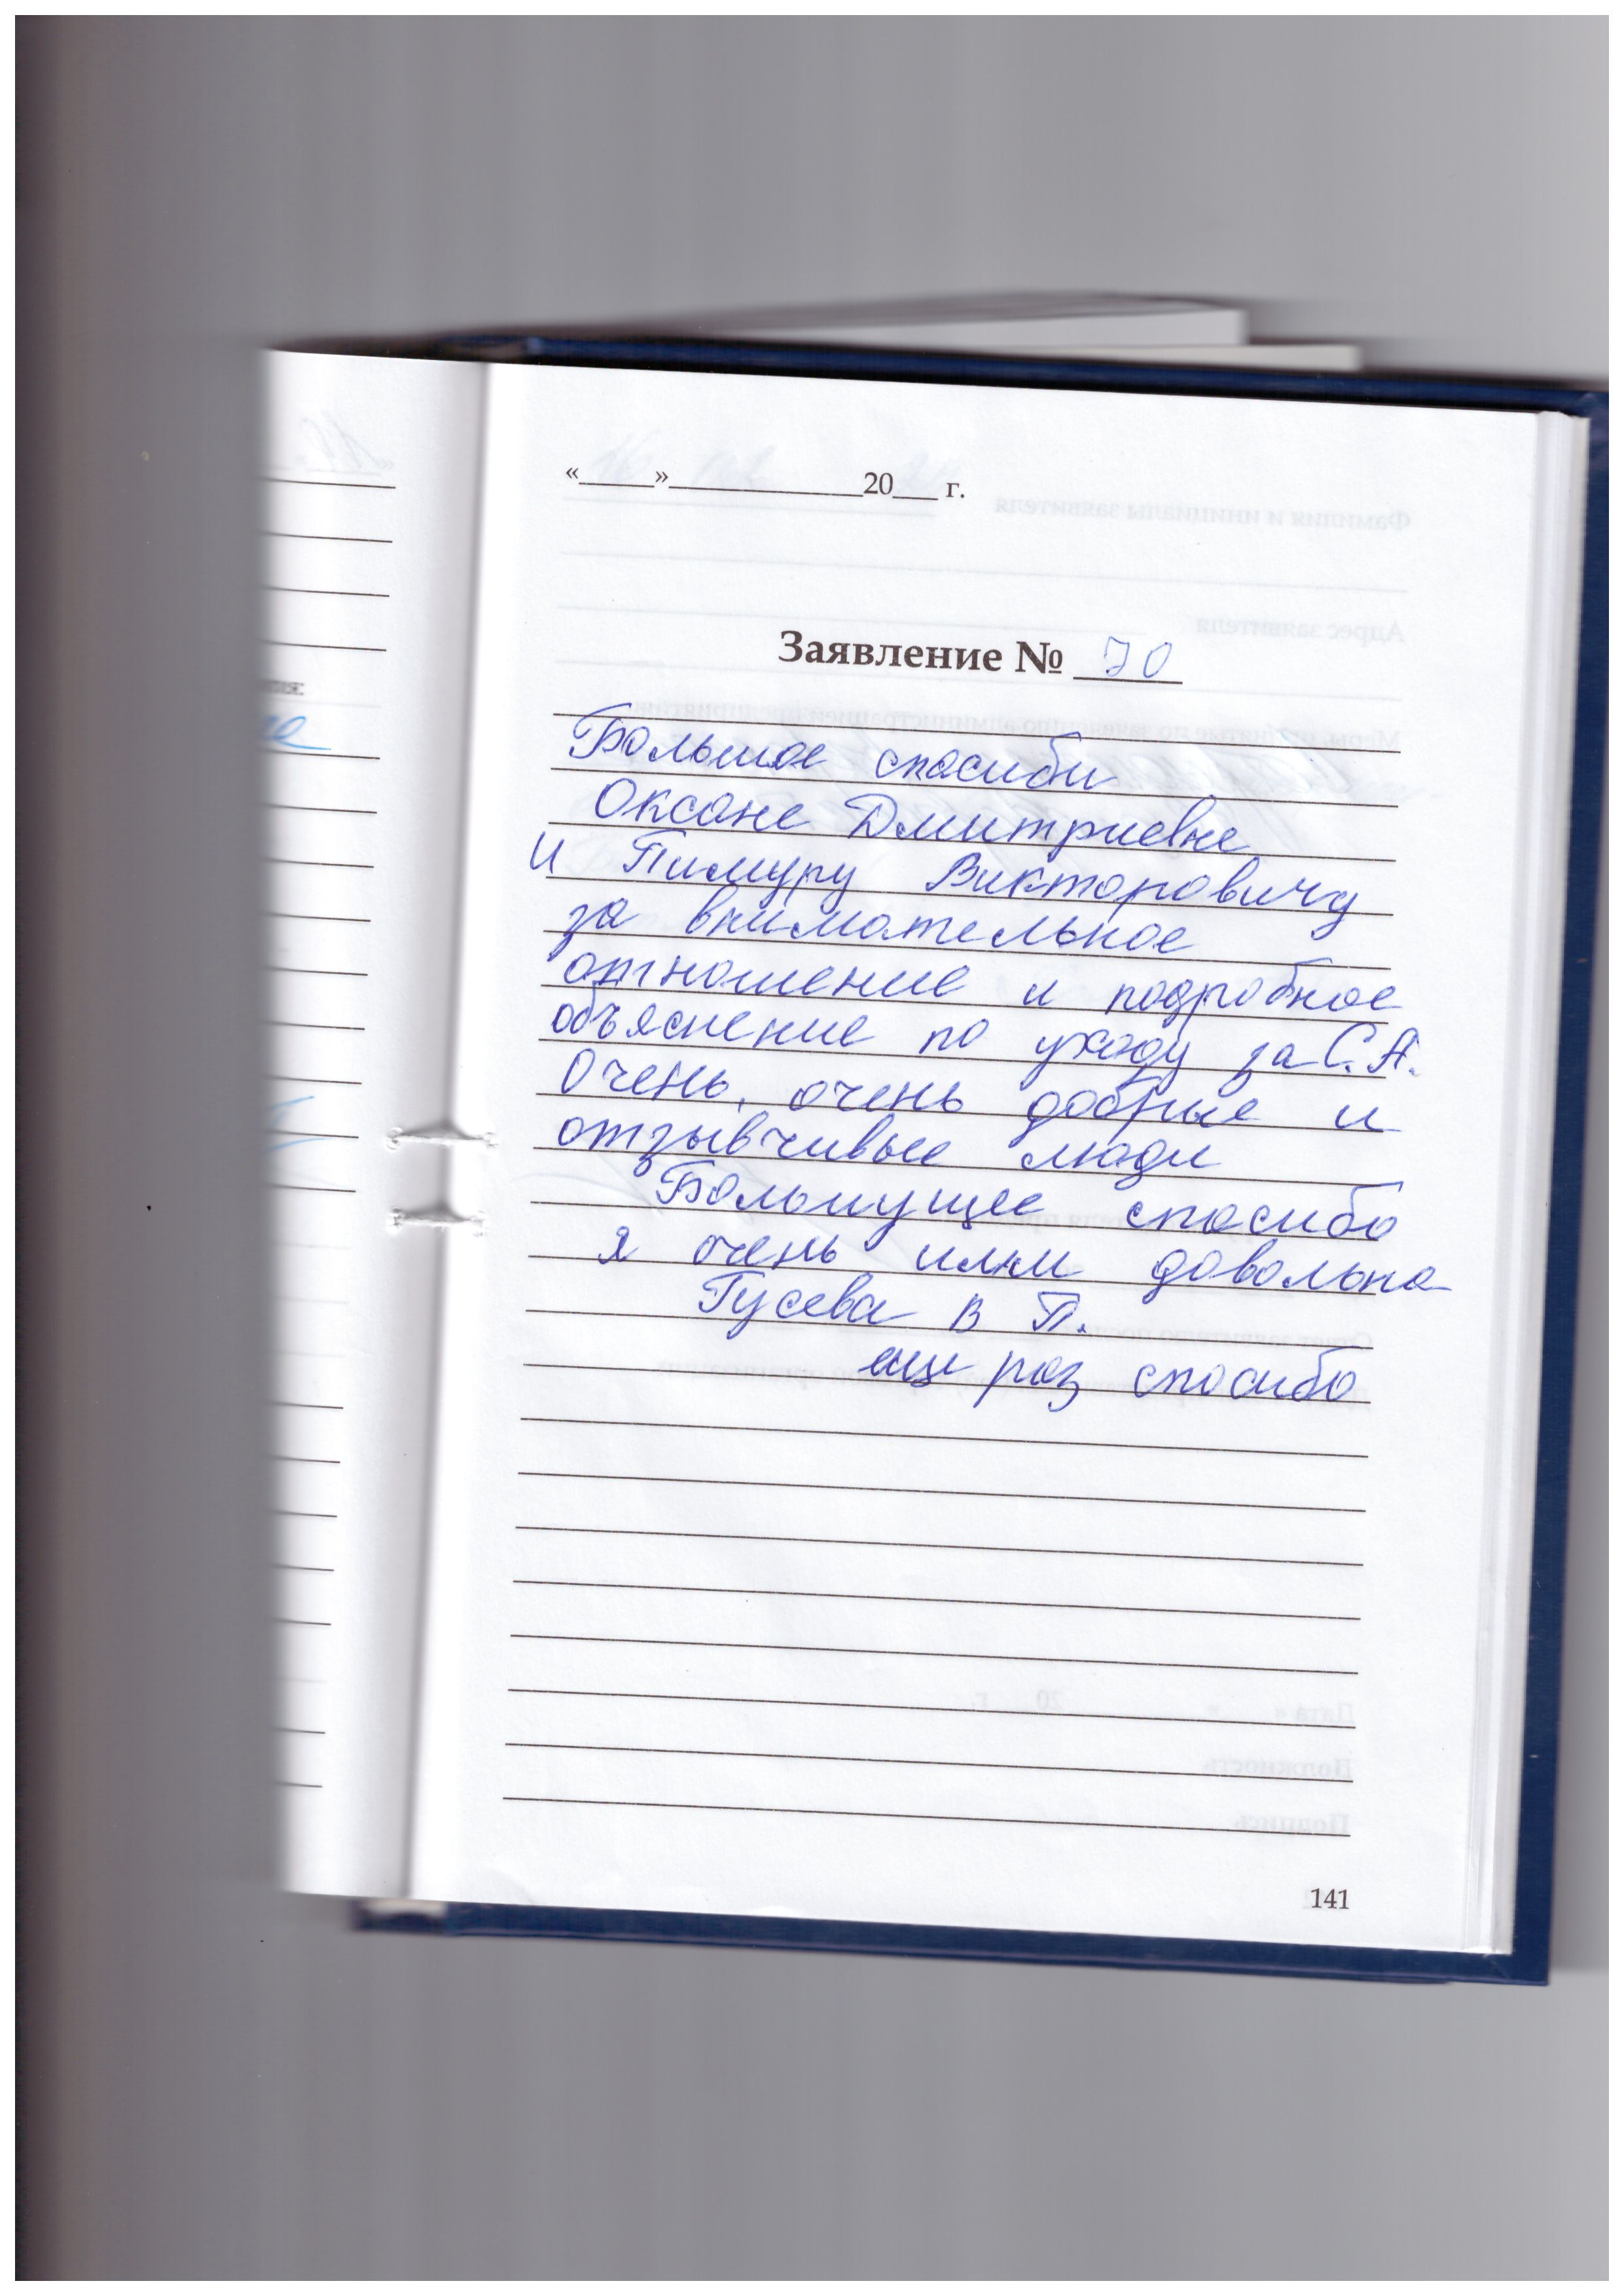 «_____»_____________20___ г.
Заявление № 70
Большое спасиби
Оксане Дмитриевне
и Тимуру Викторовичу
за внимательное
отношение и подробное
объяснение по уходу за С.А.
Очень, очень добрые и
отзывчивые люди
Большущее спасибо
я очень ими довольна
Гусева В П.
еще раз спасибо
141